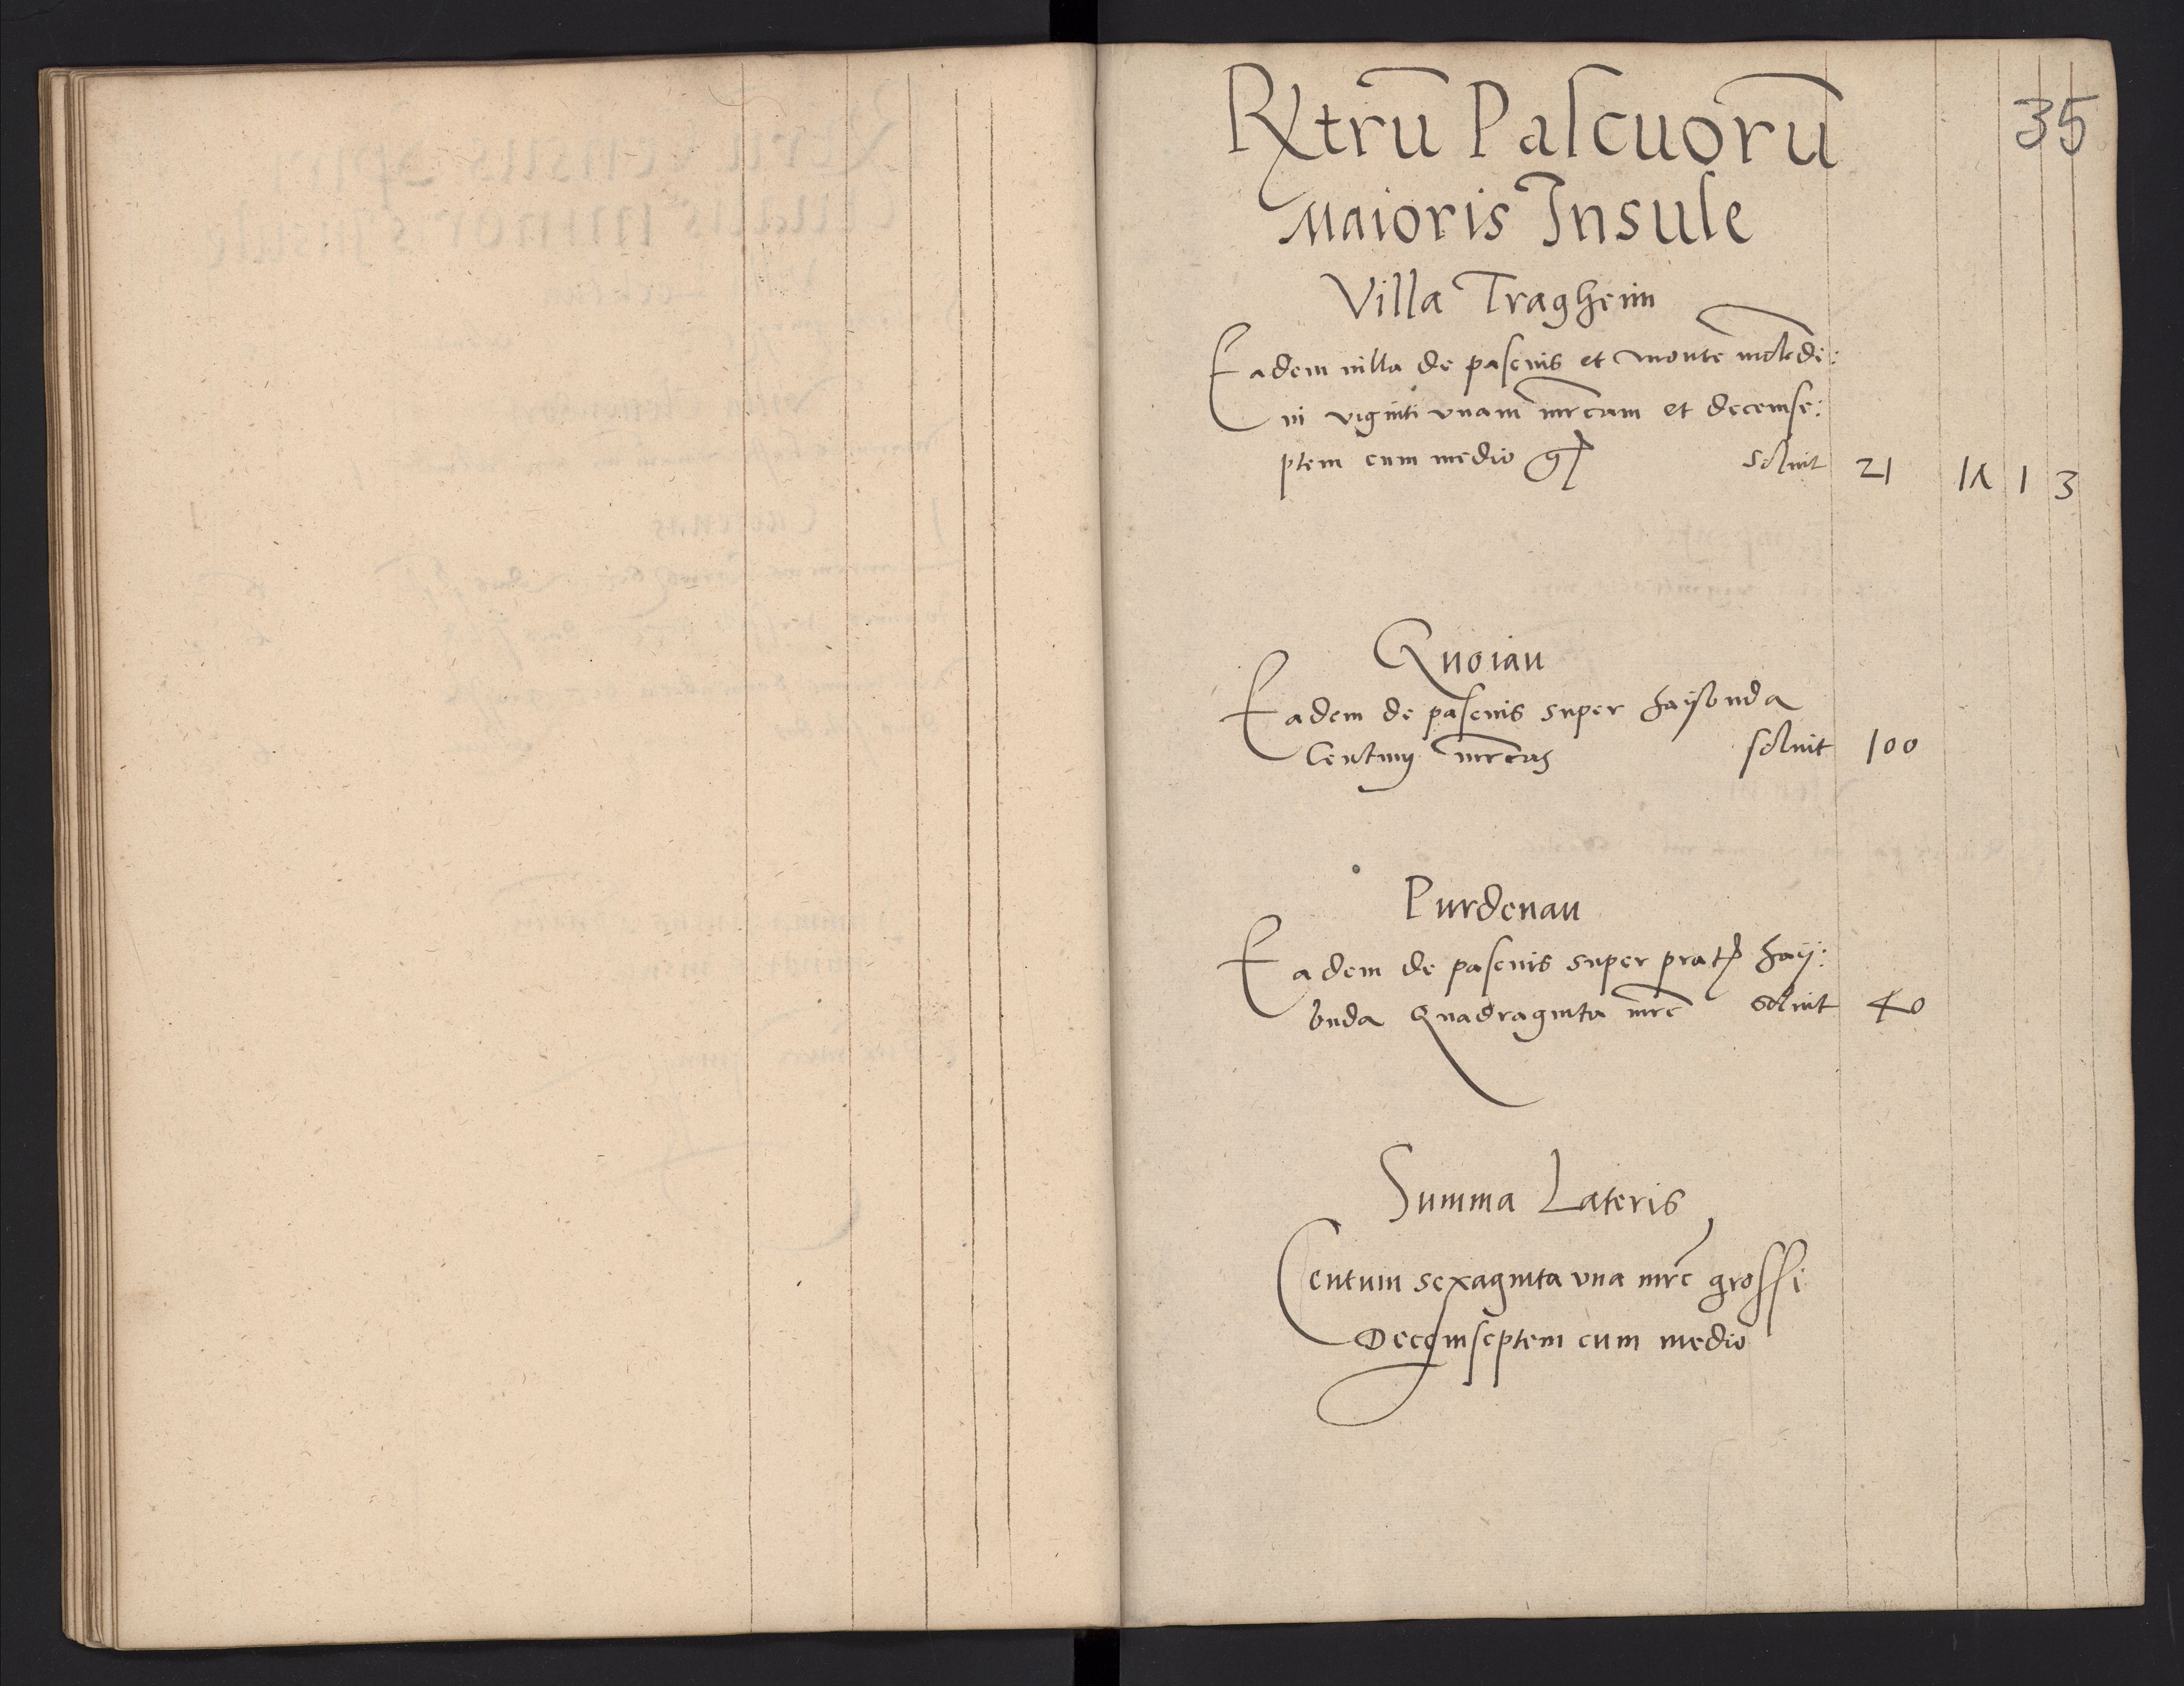 35
Rx̄trū Pascuorū
Maioris Insule
Villa Tragheim
Eadem villa de pascuis et monte molēdi:
ni viginti vnam mrcam et decemse:
ptem cum medio gꝭ soluit 21 17 1 3
Quoiau
Eadem de pascuis super haysonda
Centum mrcas soluit 100
Purdenau
Eadem de pascuis super pratꝭ haÿ:
onda Quadraginta mrc̄ soluit 40
Summa Lateris
Centum sexaginta vna mrc̄ grossi
Decemseptem cum medio